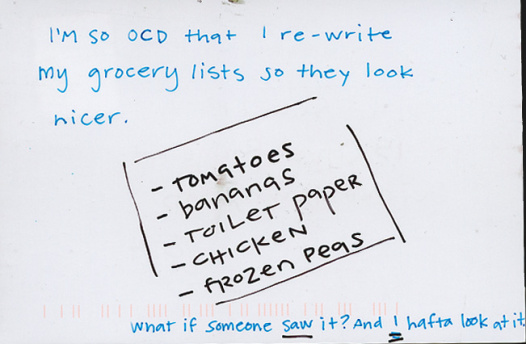 I'm so OCD that I re-write
my grocery lists so they look
nicer.
- Tomatoes
- bananas
- TOILET paper
- CHICKEN
- frozen peas
What if someone saw it? And I hafta look at it